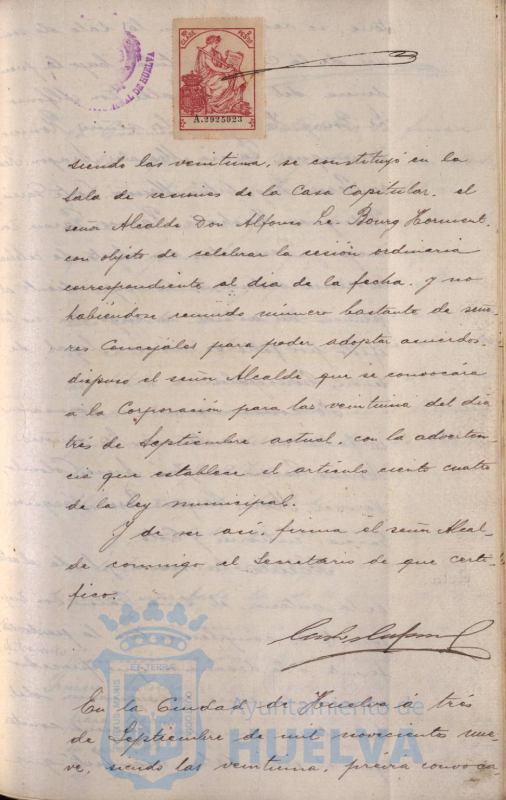 CLASE
PESETA
A.2925023
DE HUELVA
siendo las veintiuna, se constituyó en la
Sala de sesiones de la Casa Capitular, el
señor Alcalde Don Alfonso Le Bourg Horment,
con objeto de celebrar la sesión ordinaria
correspondiente al dia de la fecha, y no
habiéndose reunido número bastante de seño-
res Concejales para poder adoptar acuerdos
dispuso el señor Alcalde que se convocára
a la Corporación para las veintiuna del dia
trés de Septiembre actual, con la adverten-
cia que establece el artículo ciento cuatro
de la ley municipal.
Y de ser así, firma el señor Alcal-
de conmigo el Secretario de que certi-
fico.
En la Ciudad de Huelva á trés
de Septiembre de mil novecientos nue-
ve, siendo las veintiuna, prévia convoca-
Ayuntamiento de
HUELVA